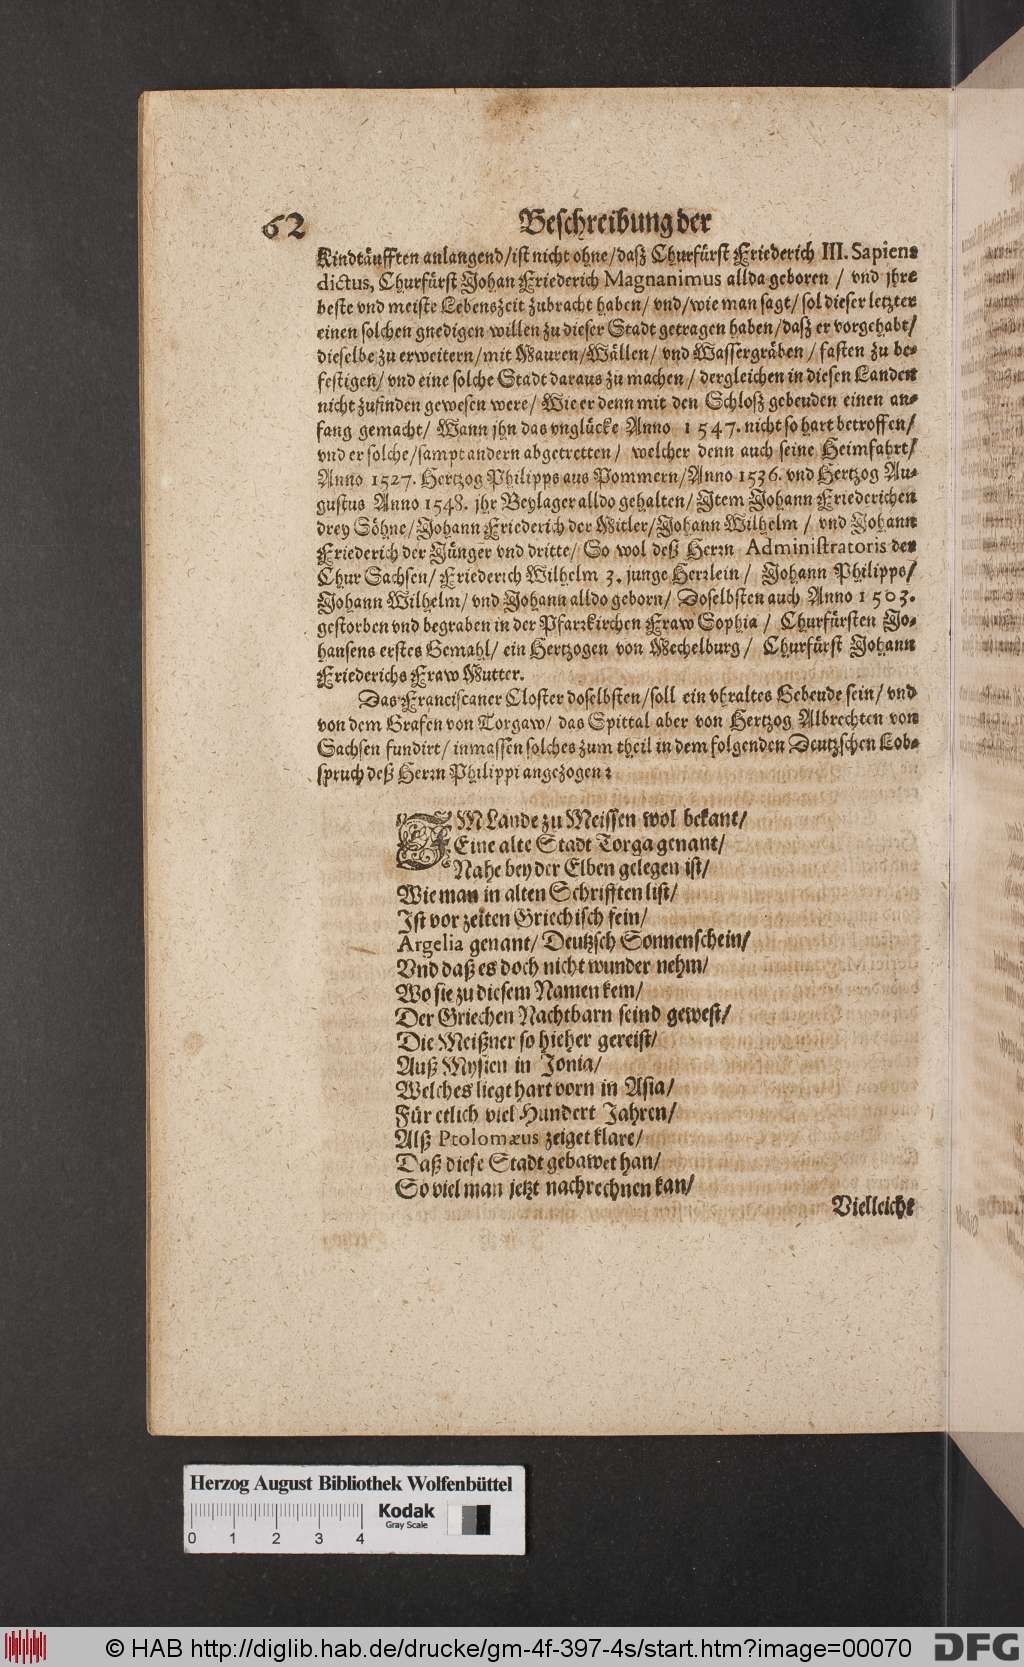 62
Beschreibung der
Kindtäufften anlangend/ist nicht ohne/daß Churfürst Friederich III. Sapiens
dictus, Churfürst Johan Friederich Magnanimus allda geboren / vnd jhre
beste vnd meiste Lebenszeit zubracht haben/ vnd/wie man sagt/ sol dieser letzter
einen solchen gnedigen willen zu dieser Stadt getragen haben/daß er vorgehabt/
dieselbe zu erweitern/mit Mauren/Wällen/ vnd Wassergräben / fasten zu be-
festigen/ vnd eine solche Stadt daraus zu machen / dergleichen in diesen Landen
nicht zufinden gewesen were/ Wie er denn mit den Schloß gebeuden einen an-
fang gemacht/ Wann jhn das vnglücke Anno 1547. nicht so hart betroffen/
vnd er solche/sampt andern abgetretten/ welcher denn auch seine Heimfahrt/
Anno 1527. Hertzog Philipps aus Pommern/Anno 1536. vnd Hertzog Au-
gustus Anno 1548. jhr Beylager alldo gehalten/ Item Johann Friederichen
drey Söhne/Johann Friederich der Mitler/Johann Wilhelm / vnd Johann
Friederich der Jünger vnd dritte/ So wol deß Herrn Administratoris der
Chur Sachsen/ Friederich Wilhelm 3. junge Herrlein/ Johann Philipps/
Johann Wilhelm/ vnd Johann alldo geborn/ Doselbsten auch Anno 1503.
gestorben vnd begraben in der Pfarrkirchen Fraw Sophia / Churfürsten Jo-
hansens erstes Gemahl/ ein Hertzogen von Mechelburg/ Churfürst Johann
Friederichs Fraw Mutter.
Das Franciscaner Closter doselbsten/soll ein vhraltes Gebeude sein/ vnd
von dem Grafen von Torgaw/ das Spittal aber von Hertzog Albrechten von
Sachsen fundirt/ inmassen solches zum theil in dem folgenden Deutzschen Lob-
spruch deß Herrn Philippi angezogen:
IM Lande zu Meissen wol bekant/
Eine alte Stadt Torga genant/
Nahe bey der Elben gelegen ist/
Wie man in alten Schrifften list/
Ist vor zeiten Griechisch fein/
Argelia genant/ Deutzsch Sonnenschein/
Vnd daß es doch nicht wunder nehm/
Wo sie zu diesem Namen kem/
Der Griechen Nachtbarn seind gewest/
Die Meißner so hieher gereist/
Auß Mysien in Jonia/
Welches liegt hart vorn in Asia/
Für etlich viel Hundert Jahren/
Alß Ptolomæus zeiget klare/
Daß diese Stadt gebawet han/
So viel man jetzt nachrechnen kan/
Vielleicht
Herzog August Bibliothek Wolfenbüttel
0 1 2 3 4
Kodak
Gray Scale
© HAB http://diglib.hab.de/drucke/gm-4f-397-4s/start.htm?image=00070
DFG